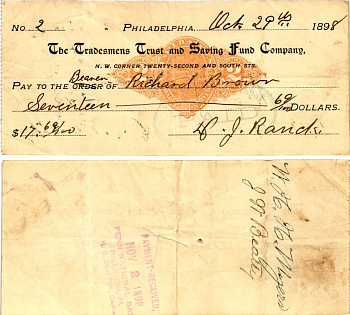 No. 2 Philadelphia, Oct. 29th 1898
The Tradesmens Trust and Saving Fund Company,
N. W. CORNER TWENTY-SECOND AND SOUTH STS.
Bearer
PAY TO THE ORDER OF Richard Brown
Seventeen 69/100 DOLLARS.
$17.69/100 J. Ranck
PAYMENT RECEIVED
NOV 2 1898
PENN NATIONAL BANK
W. H. H. Myers
J W Beatty